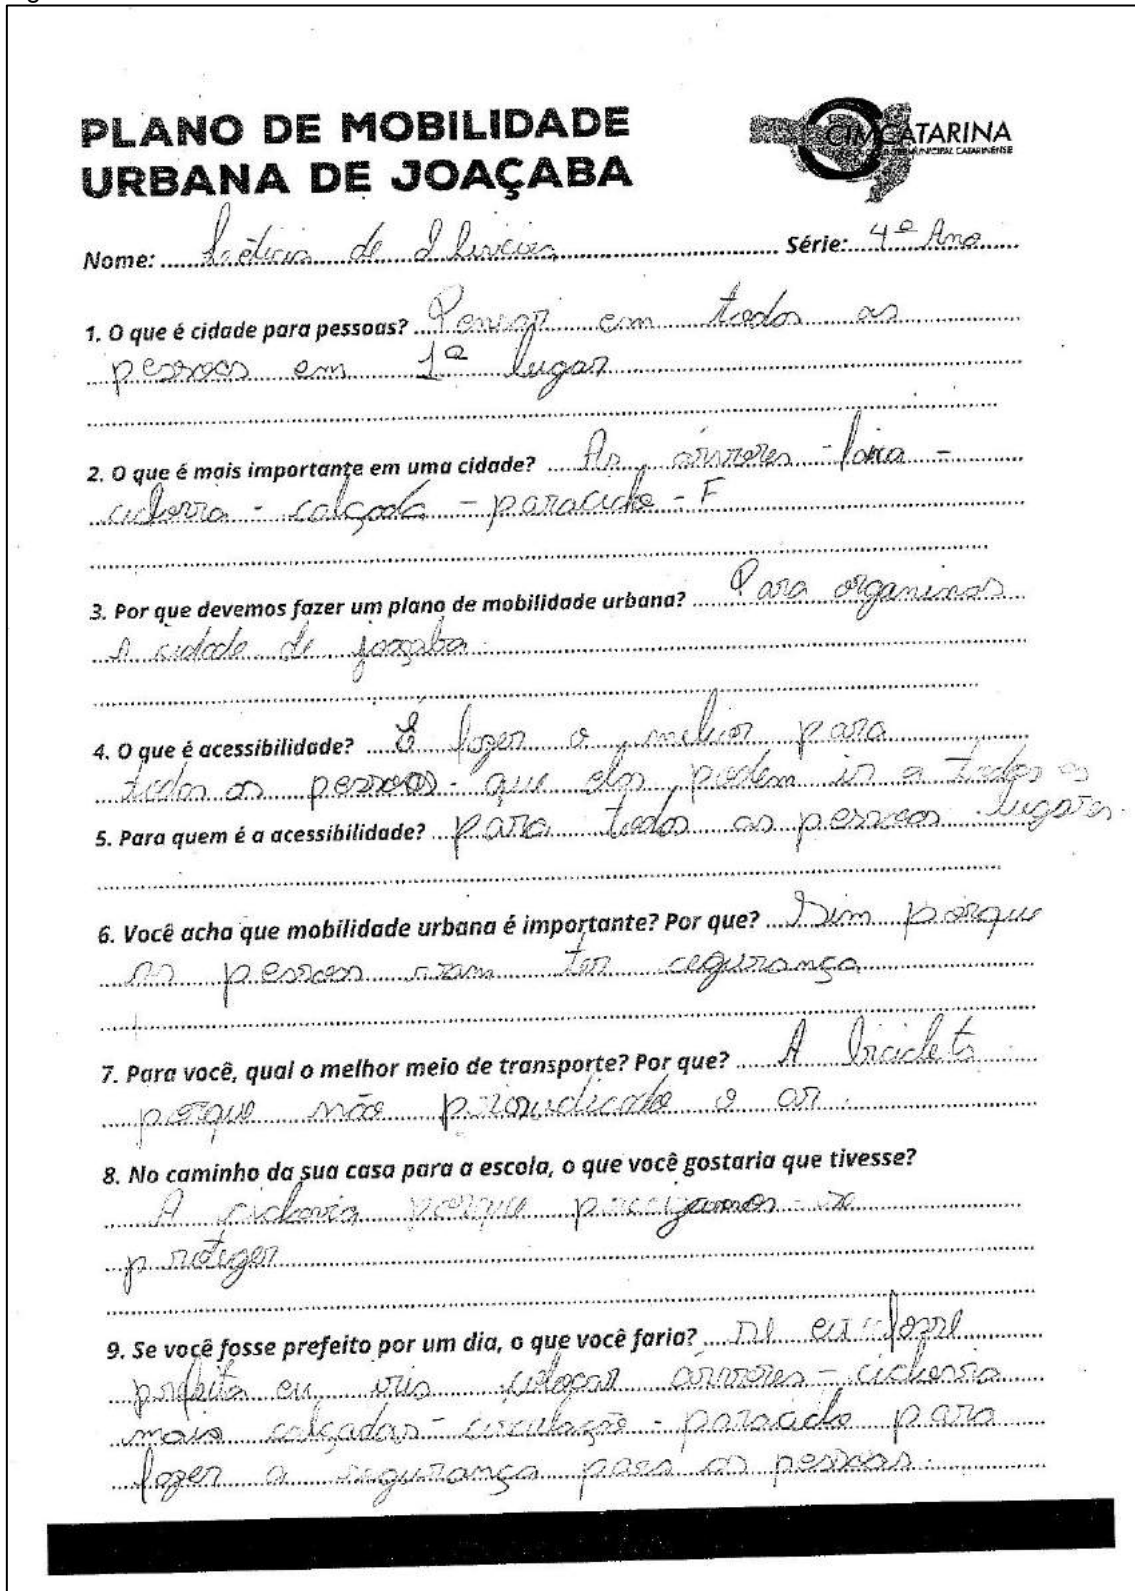 PLANO DE MOBILIDADE
URBANA DE JOAÇABA
CIMCATARINA
Nome: Letícia de Oliveira Série: 4º Ano
1. O que é cidade para pessoas? Pensar em todas as
pessoas em 1º lugar
2. O que é mais importante em uma cidade? As árvores - faixa -
ciclovia - calçada - paraciclo - F
3. Por que devemos fazer um plano de mobilidade urbana? Para
a cidade de joaçaba.
4. O que é acessibilidade? É fazer o melhor para
todas as pessoas. que elas podem ir a todos os
lugares.
5. Para quem é a acessibilidade? para todas as pessoas
6. Você acha que mobilidade urbana é importante? Por que? Sim porque
as pessoas vam ter cegurança
7. Para você, qual o melhor meio de transporte? Por que? A bicicleta
porque não o ar.
8. No caminho da sua casa para a escola, o que você gostaria que tivesse?
A ciclovia porque se
proteger
9. Se você fosse prefeito por um dia, o que você faria? se eu fosse
prefeita eu iria colocar árvores - ciclovia
mais calçadas - circulação - paraciclo para
fazer a segurança para as pessoas.